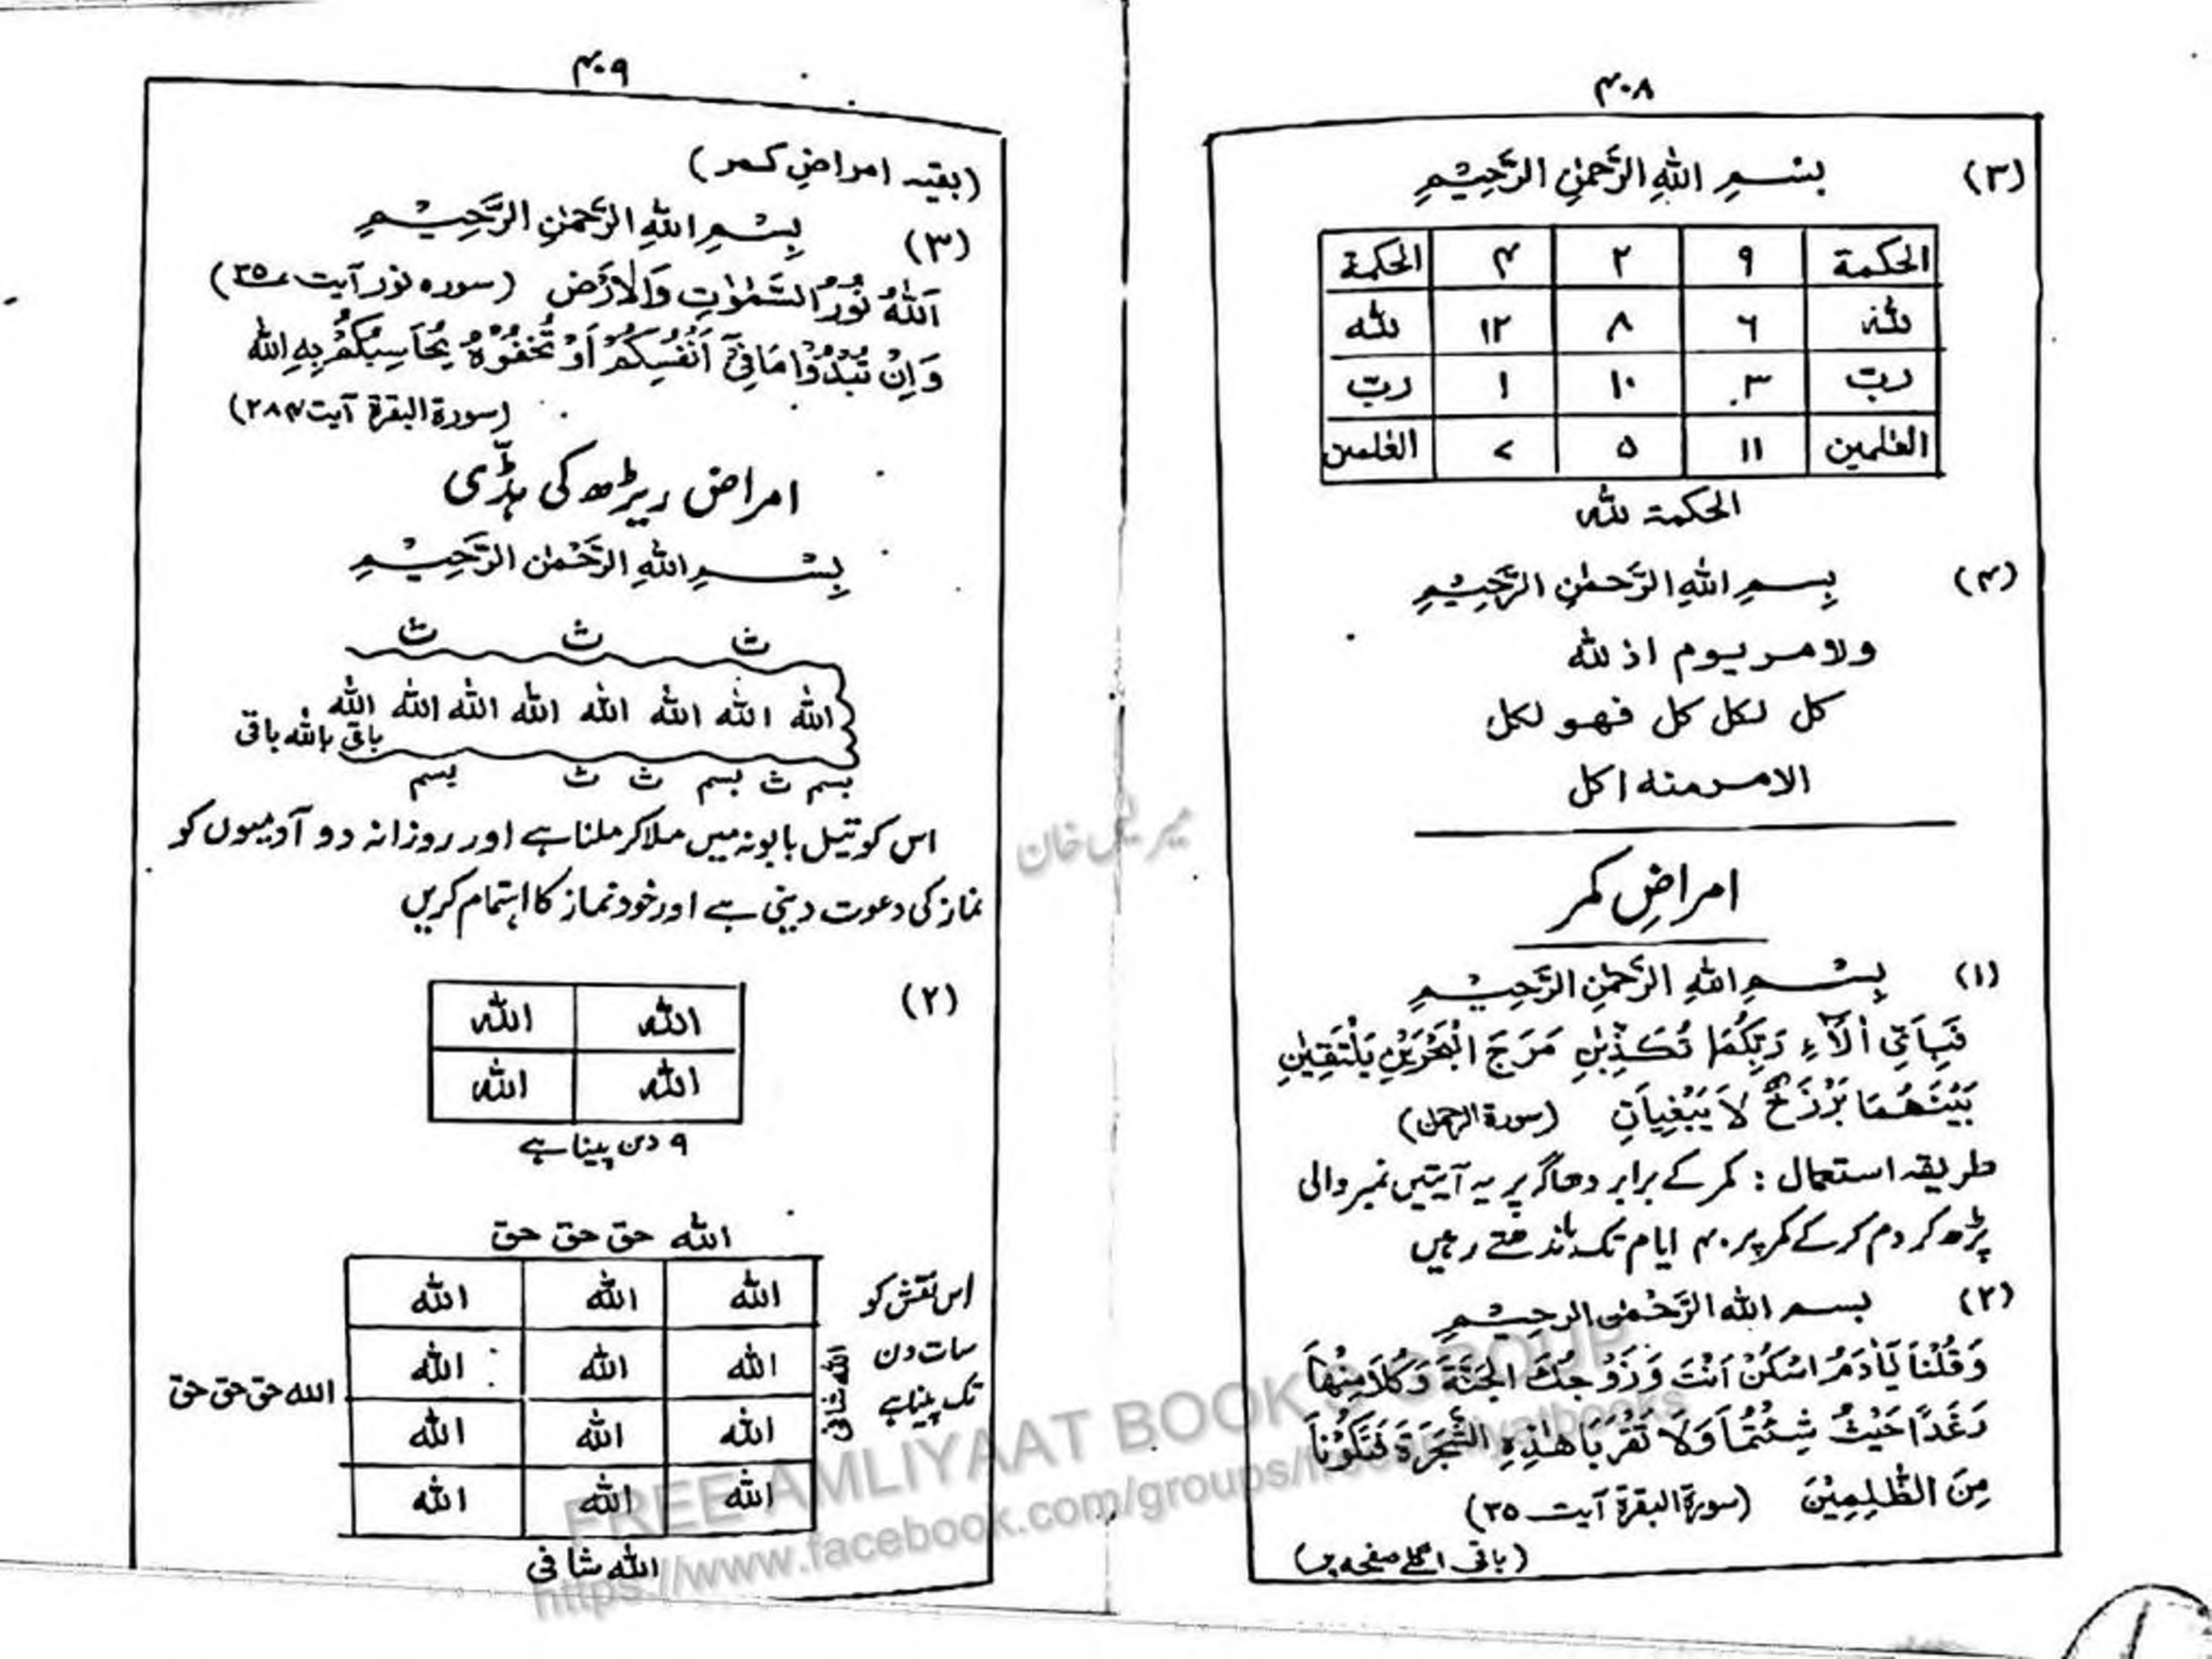 ۴۰۸
(۳) بسم اللهِ الرَّحمٰنِ الرَّحِيْمِ
الحكمة ۹ ۲ ۴ الحكمة
لله ۶ ۸ ۱۲ لله
ربّ ۳ ۱۰ ۱ ربّ
العٰلمين ۱۱ ۵ ۷ العٰلمين
الحكمة لله
(۴) بِسمِ اللهِ الرَّحمٰنِ الرَّحِيْمِ
ولامر يوم اذ لله
كل لكل كل فهو لكل
الامر منه اكل
امراضِ کمر
(۱) بِسْمِ اللهِ الرَّحمٰنِ الرَّحِيْمِ
فَبِاَيِّ اٰلَآءِ رَبِّكُمَا تُكَذِّبٰنِ مَرَجَ الْبَحْرَيْنِ يَلْتَقِيٰنِ
بَيْنَهُمَا بَرْزَخٌ لَا يَبْغِيَانِ (سورة الرحمٰن)
طریقہ استعمال : کمر کے برابر دھاگہ پر یہ آیتیں نمبر والی
پڑھ کر دم کر کے کمر پر ۴۰ ایام تک باندھتے رہیں
(۲) بسم الله الرَّحْمٰن الرحِيْمِ
وَقُلْنَا يَاٰدَمُ اسْكُنْ اَنْتَ وَزَوْجُكَ الْجَنَّةَ وَكُلَا مِنْهَا
رَغَدًا حَيْثُ شِئْتُمَا وَلَا تَقْرَبَا هٰذِهِ الشَّجَرَةَ فَتَكُوْنَا
مِنَ الظّٰلِمِيْنَ (سورة البقرة آیت ۳۵)
(باقی اگلے صفحہ پر)
۴۰۹
(بقیہ امراضِ کمر)
(۳) بِسْمِ اللهِ الرَّحمٰنِ الرَّحِيْمِ
اَللهُ نُوْرُ السَّمٰوٰتِ وَالْاَرْضِ (سوره نور آیت ۳۵)
وَاِنْ تُبْدُوْا مَا فِيْٓ اَنْفُسِكُمْ اَوْ تُخْفُوْهُ يُحَاسِبْكُمْ بِهِ اللهُ
(سورة البقرة آیت ۲۸۴)
امراض ریڑھ کی ہڈّی
بِسْمِ اللهِ الرَّحْمٰنِ الرَّحِيْمِ
ث ث ث
الله الله الله الله الله الله الله الله
باقی بالله باقی
بسم ث بسم ث ث بسم
اس کو تیل بابونہ میں ملا کر ملنا ہے اور روزانہ دو آدمیوں کو
نماز کی دعوت دینی ہے اور خود نماز کا اہتمام کریں
(۲)
الله الله
الله الله
۹ دن پینا ہے
الله حق حق حق
اس نقش کو
سات دن
تک پینا ہے
الله شافی
الله الله الله
الله الله الله
الله الله الله
الله الله الله
الله حق حق حق
الله شافی
FREE AMLIYAAT BOOK'S GROUP
https://www.facebook.com/groups/freeamliyatbooks